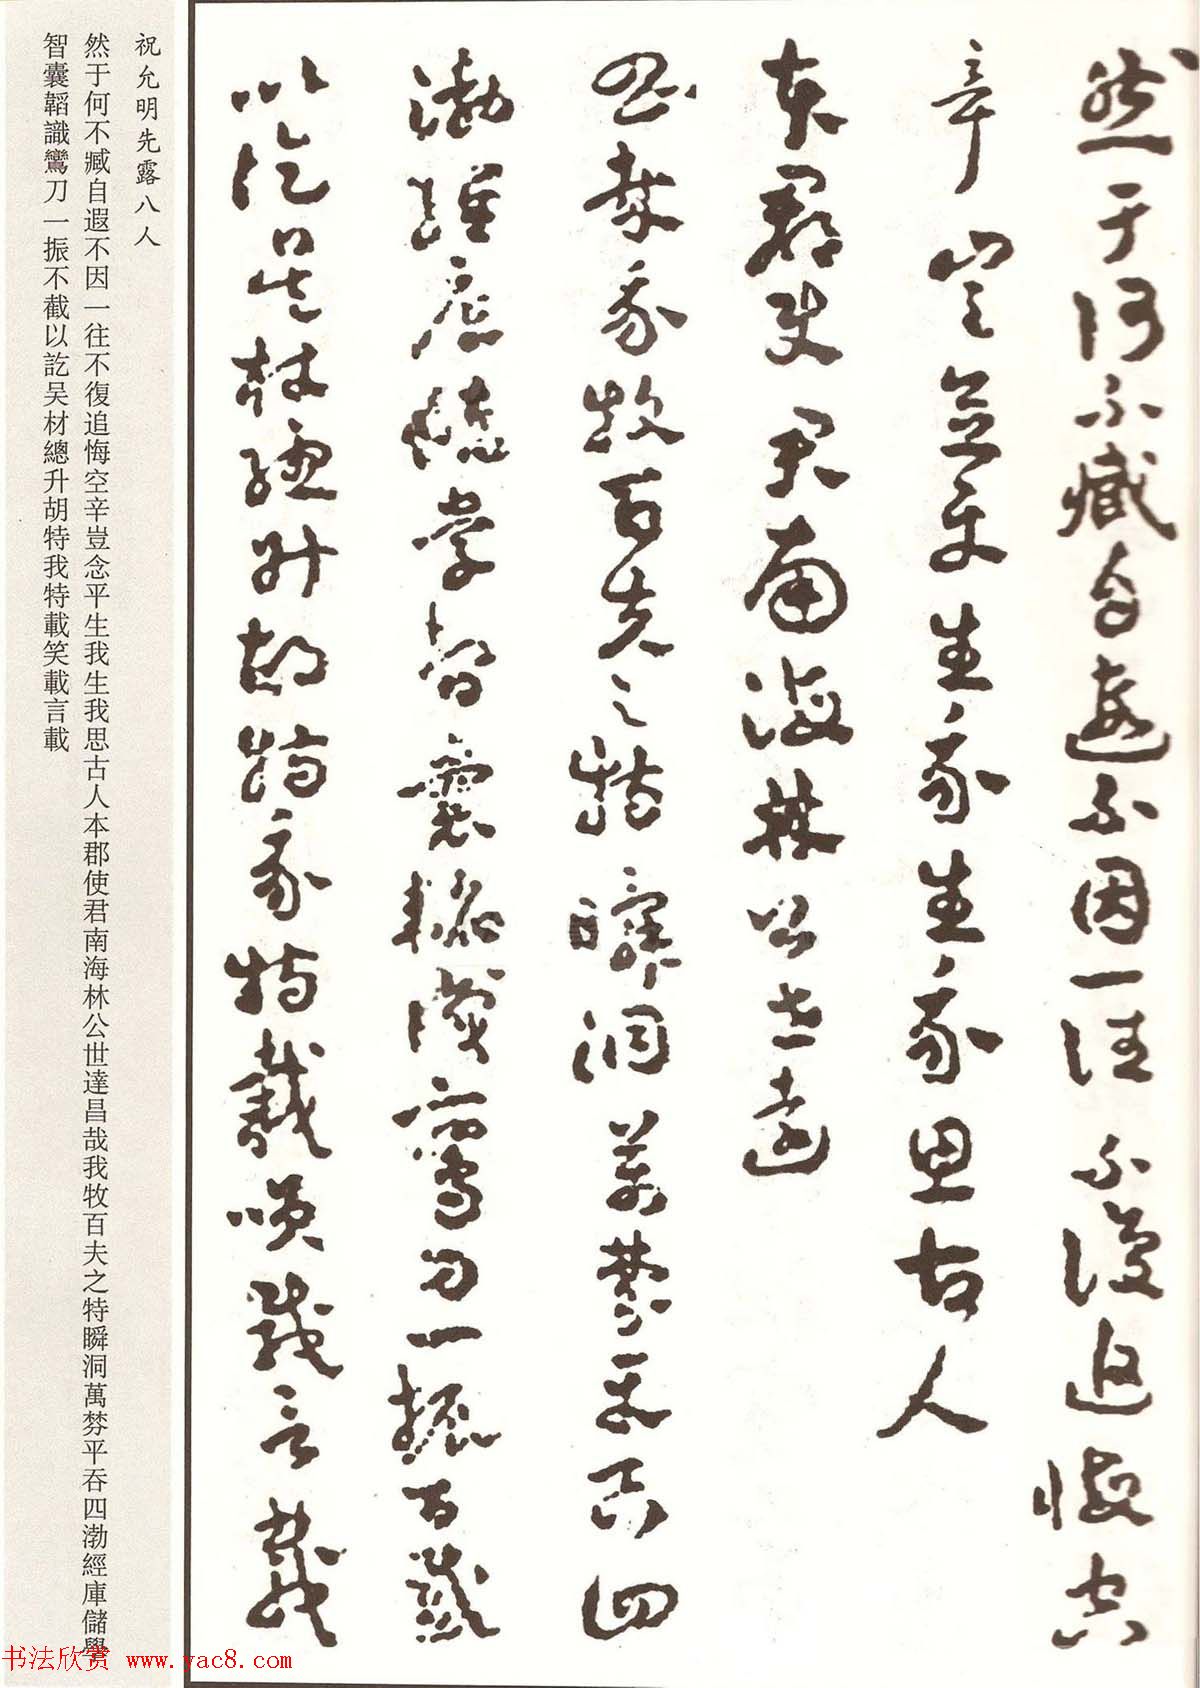 然于何不臧自遐不因一往不復追悔空
辛豈念平生我生我思古人
本郡使君南海林公世遠
昌哉我牧百夫之特瞬洞萬棼平吞四
渤經庫儲學智囊韜識鸞刀一振百截
以訖吴材總升胡特我特載笑載言載
祝允明先露八人
然于何不臧自遐不因一往不復追悔空辛豈念平生我生我思古人本郡使君南海林公世達昌哉我牧百夫之特瞬洞萬棼平吞四渤經庫儲學
智囊韜識鸞刀一振不截以訖吴材總升胡特我特載笑載言載
书法欣赏 www.yac8.com